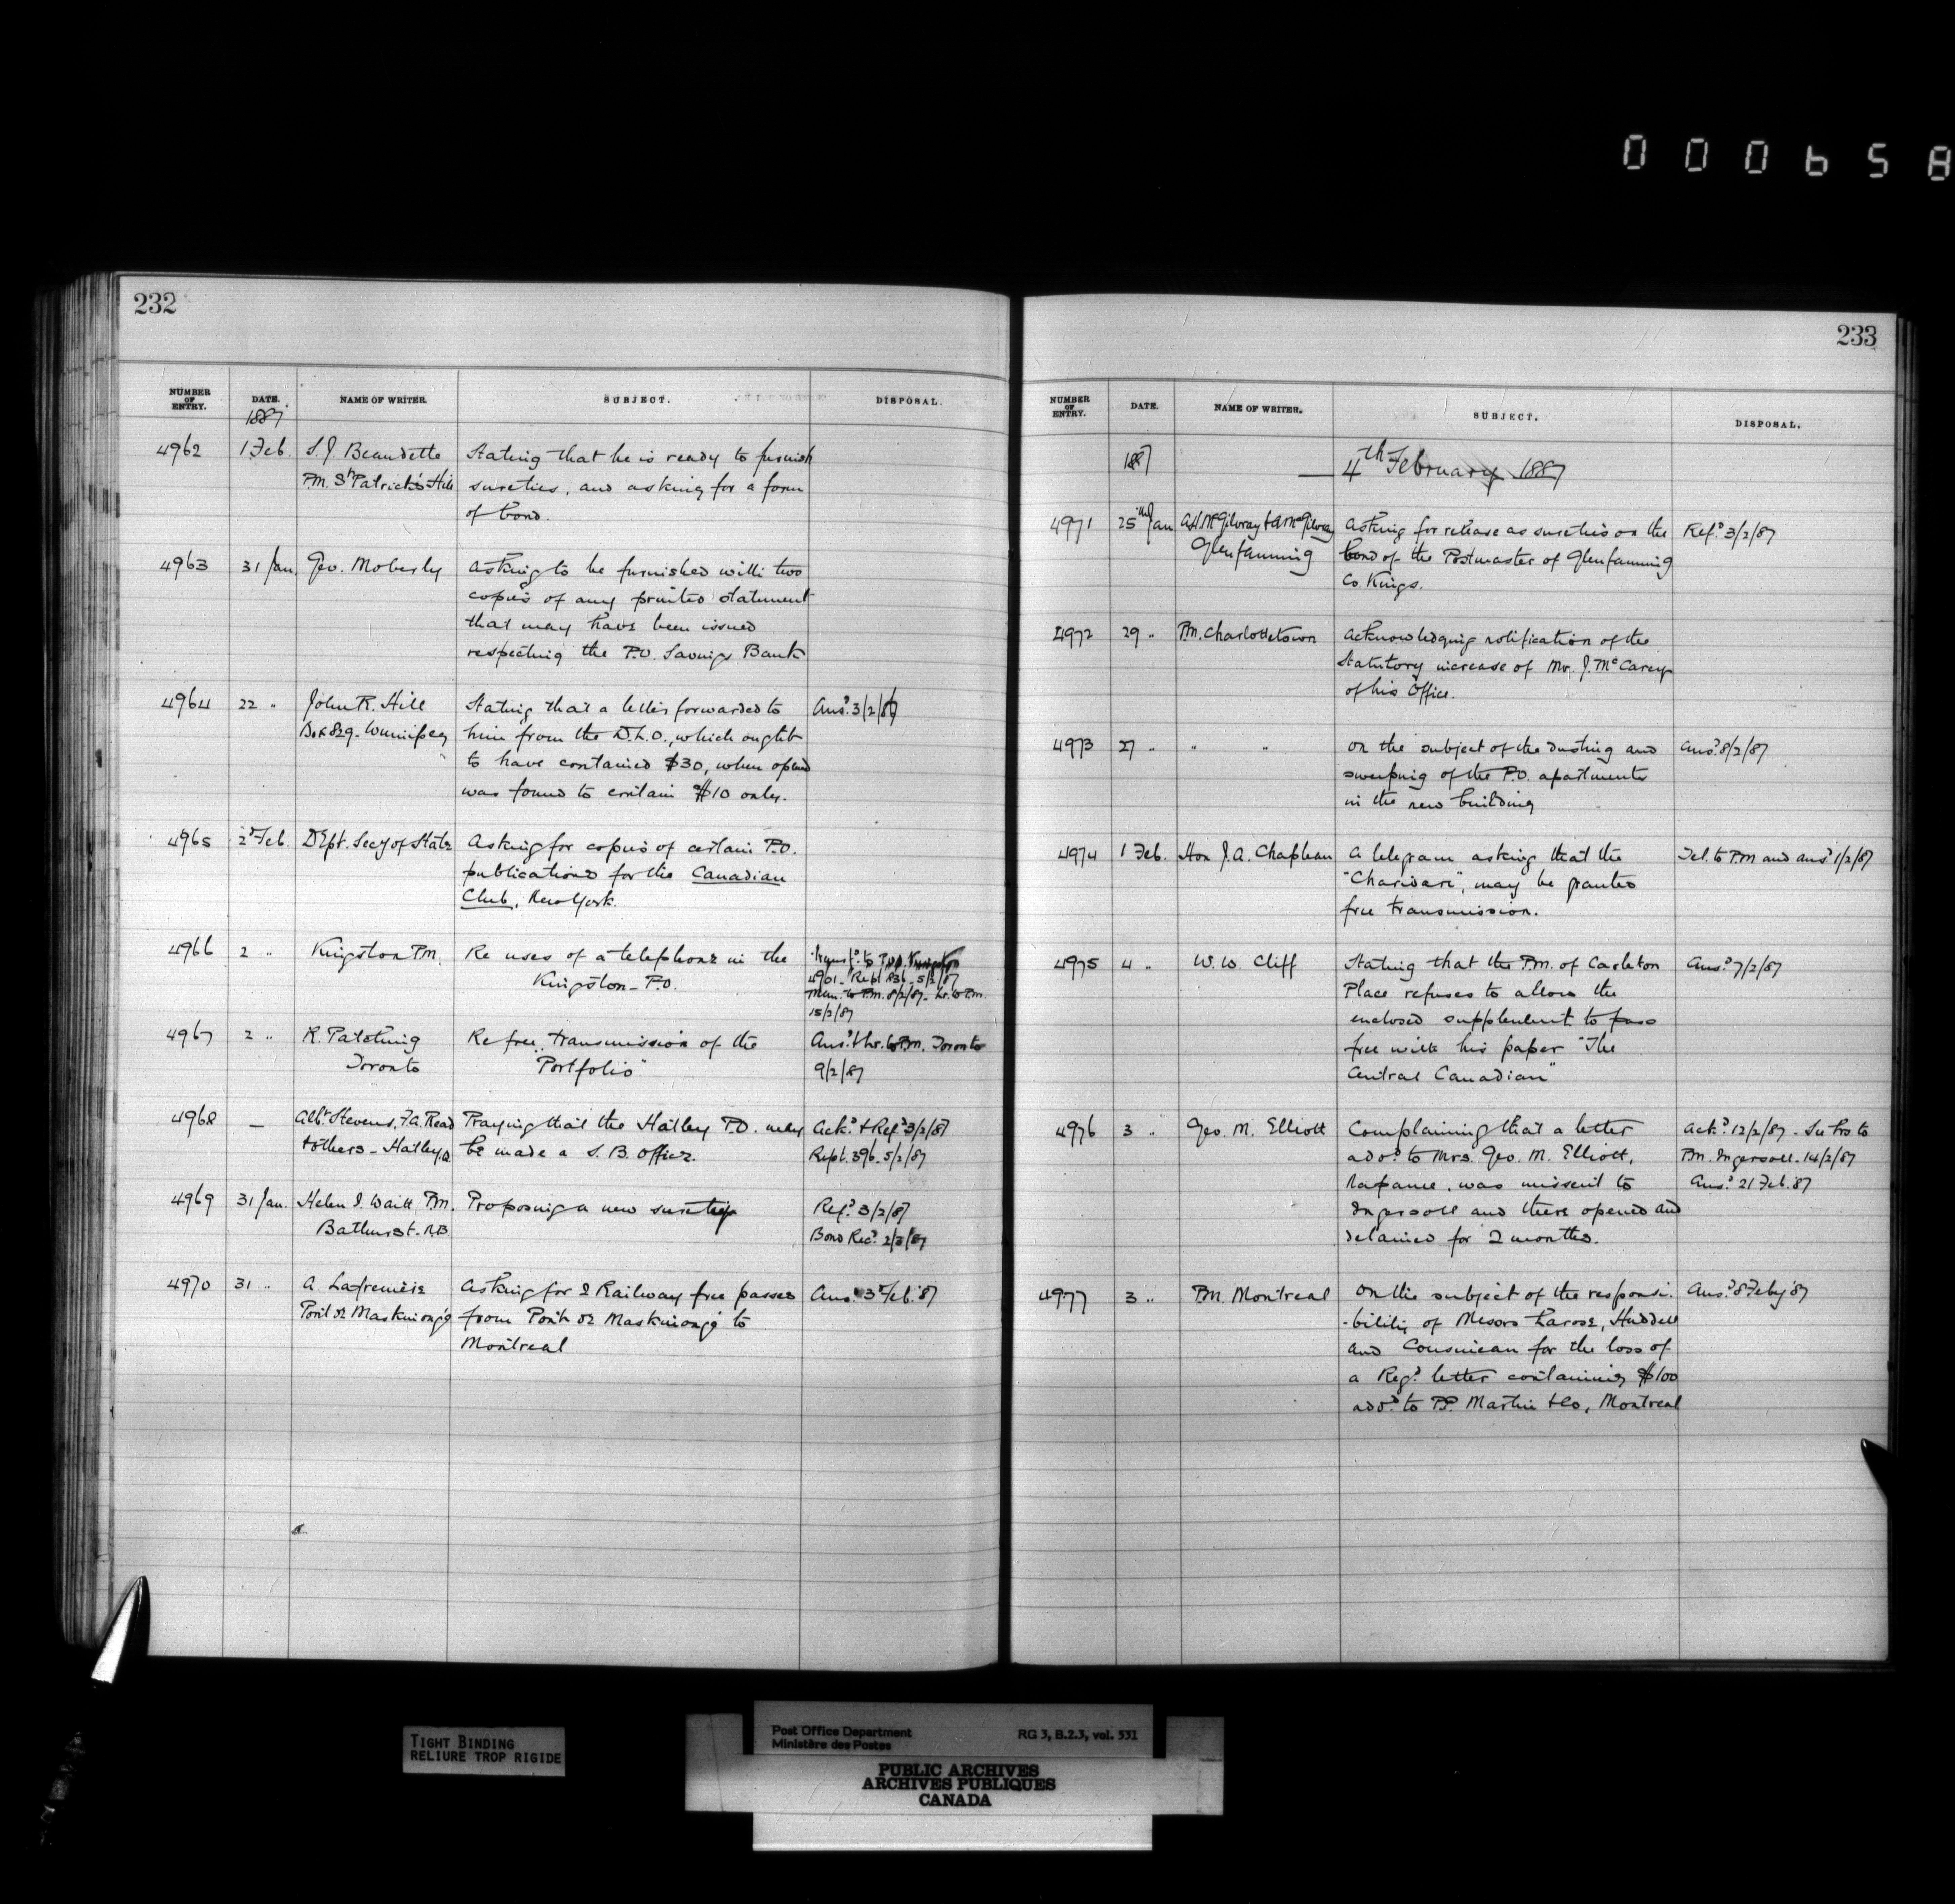 000658
232
NUMBER OF ENTRY. DATE. NAME OF WRITER. SUBJECT. DISPOSAL.
1887
4962 1 Feb. S. J. Beaudette Stating that he is ready to furnish
P.M. St Patrick's Hill sureties, and asking for a form
of bond.
4963 31 Jan. Geo. Moberly Asking to be furnished with two
copies of any printed statement
that may have been issued
respecting the P.O. Savings Bank
4964 22 " John R. Hill Stating that a letter forwarded to Ansd 3/2/87
Box 829. Winnipeg him from the D.L.O., which ought
to have contained $30, when opened
was found to contain $10 only.
4965 2d Feb. Dept. Secy of State Asking for copies of certain P.O.
publications for the Canadian
Club, New York.
4966 2 " Kingston P.M. Re uses of a telephone in the Transfd to P.O.D. Kingston
Kingston P.O. 4901 - Rept 836 - 5/2/87
Mem. to P.M. 8/2/87 - Lr. to P.M.
15/2/87
4967 2 " R. Patching Re free transmission of the Ansd & lr. to P.M. Toronto
Toronto "Portfolio" 9/2/87
4968 — Albt Stevens, F.A. Read Praying that the Hatley P.O. may Ackd & Refd 3/2/87
& others - Hatley, Q. be made a S.B. Office. Rept. 396 - 5/2/87
4969 31 Jan. Helen I. Waitt P.M. Proposing a new surety Refd 3/2/87
Bathurst. N.B. Bond Recd 2/3/87
4970 31 " A Lafrenière Asking for 2 Railway free passes Ansd 3d Feb. '87
Pont de Maskinongé from Pont de Maskinongé to
Montreal
233
NUMBER OF ENTRY. DATE. NAME OF WRITER. SUBJECT. DISPOSAL.
1887 4th February 1887
4971 25th Jan A.H. McGilvray & A McGilvray Asking for release as sureties on the Refd 3/2/87
Glenfanning bond of the Postmaster of Glenfanning
Co. Kings.
4972 29 " P.M. Charlottetown Acknowledging notification of the
Statutory increase of Mr. J. McCarey
of his Office.
4973 27 " " " On the subject of the dusting and Ansd 8/2/87
sweeping of the P.O. apartments
in the new building
4974 1 Feb. Hon J. A. Chapleau A telegram asking that the Tel. to P.M and ansd 1/2/87
"Charivari", may be granted
free transmission.
4975 4 " W. W. Cliff Stating that the P.M. of Carleton Ansd 7/2/87
Place refuses to allow the
enclosed supplement to pass
free with his paper "The
Central Canadian"
4976 3 " Geo. M. Elliott Complaining that a letter Ackd 12/2/87 -
addd to Mrs. Geo. M. Elliott, P.M. Ingersoll - 14/2/87
Napanee, was missent to Ansd 21 Feb. '87
Ingersoll and there opened and
detained for 2 months.
4977 3 " P.M. Montreal On the subject of the responsi-
Ansd 8 Feby '87
-bility of Messrs Larose, Huddell
and Cousineau for the loss of
a Regd letter containing $100
addd to P.P. Martin & Co, Montreal
TIGHT BINDING
RELIURE TROP RIGIDE
Post Office Department RG 3, B.2.3, vol. 531
Ministère des Postes
PUBLIC ARCHIVES
ARCHIVES PUBLIQUES
CANADA